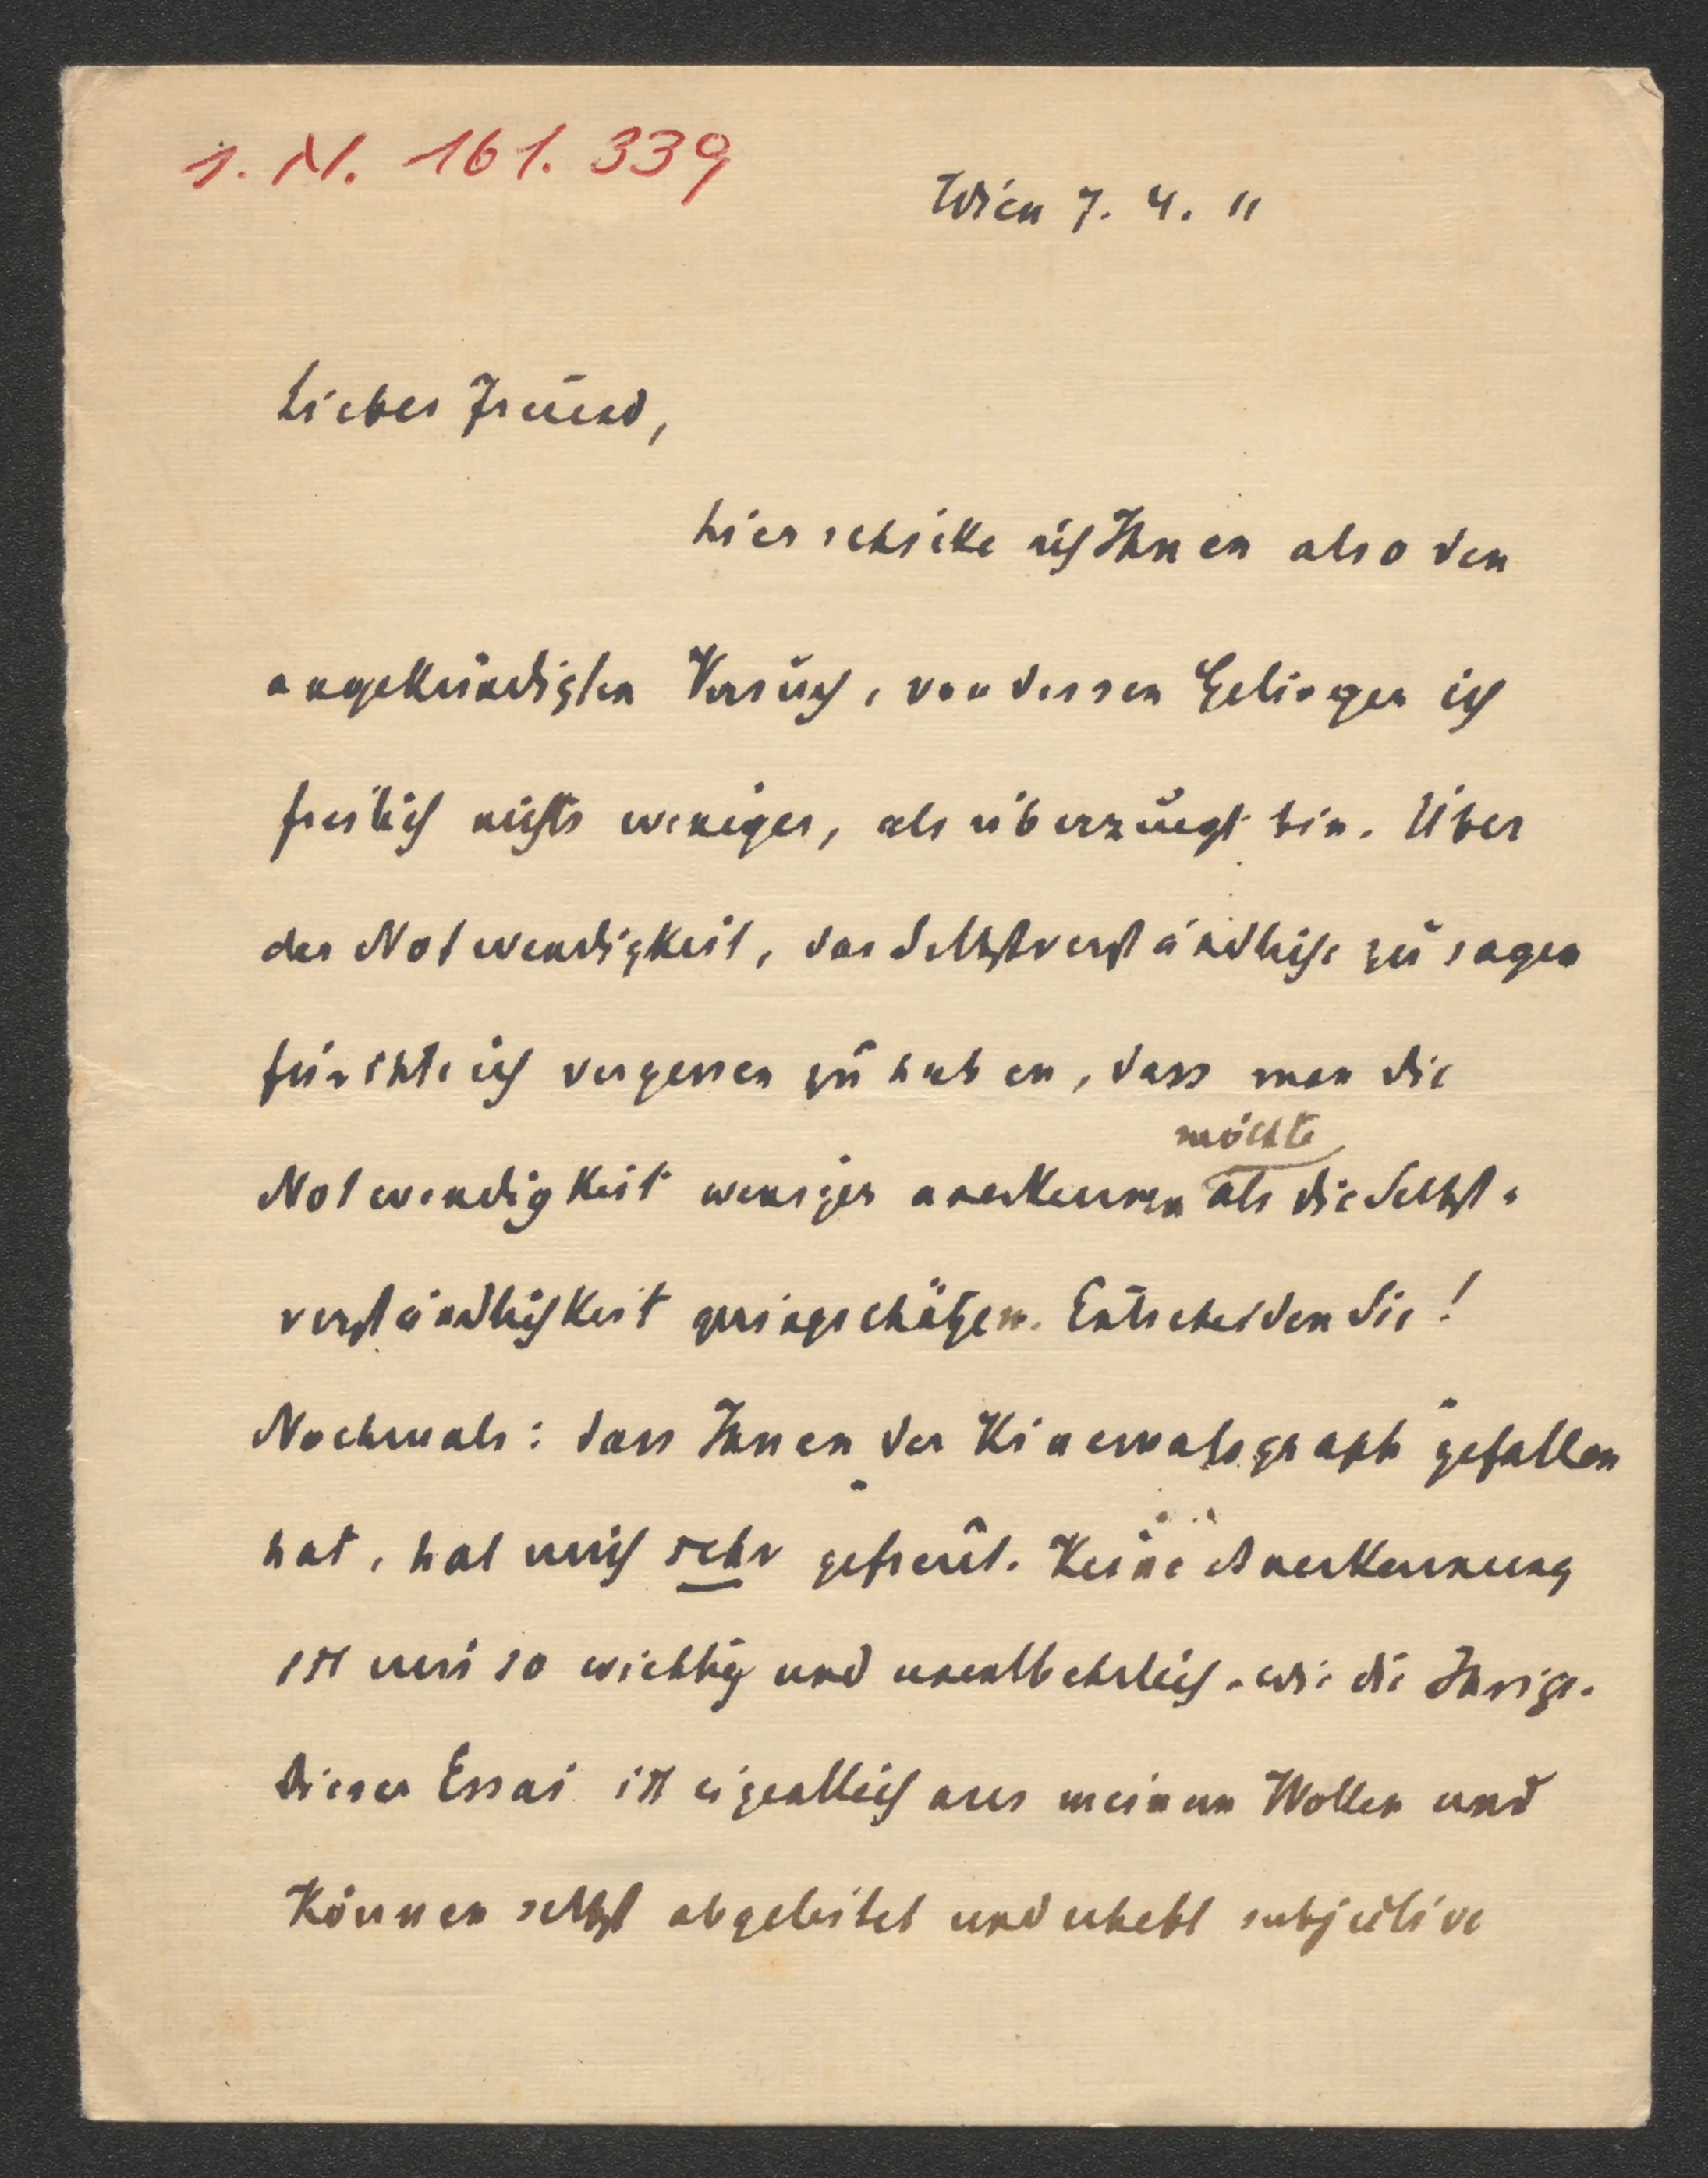 I. N. 161.339
Wien 7. 4. 11
Lieber Freund,
hier schicke ich Ihnen also den
angekündigten Versuch, von dessen Gelingen ich
freilich nichts weniger, als überzeugt bin. Über
der Notwendigkeit, das Selbstverständliche zu sagen
fürchte ich vergessen zu haben, dass man die
möchte
Notwendigkeit weniger anerkennen als die Selbst-
verständlichkeit geringschätzen. Entscheiden Sie!
Nochmals: dass Ihnen der Kinematograph gefallen
hat, hat mich sehr gefreut. Keine Anerkennung
ist mir so wichtig und unentbehrlich, wie die Ihrige.
Dieser Essai ist eigentlich aus meinem Wollen und
Können selbst abgeleitet und erhebt subjective